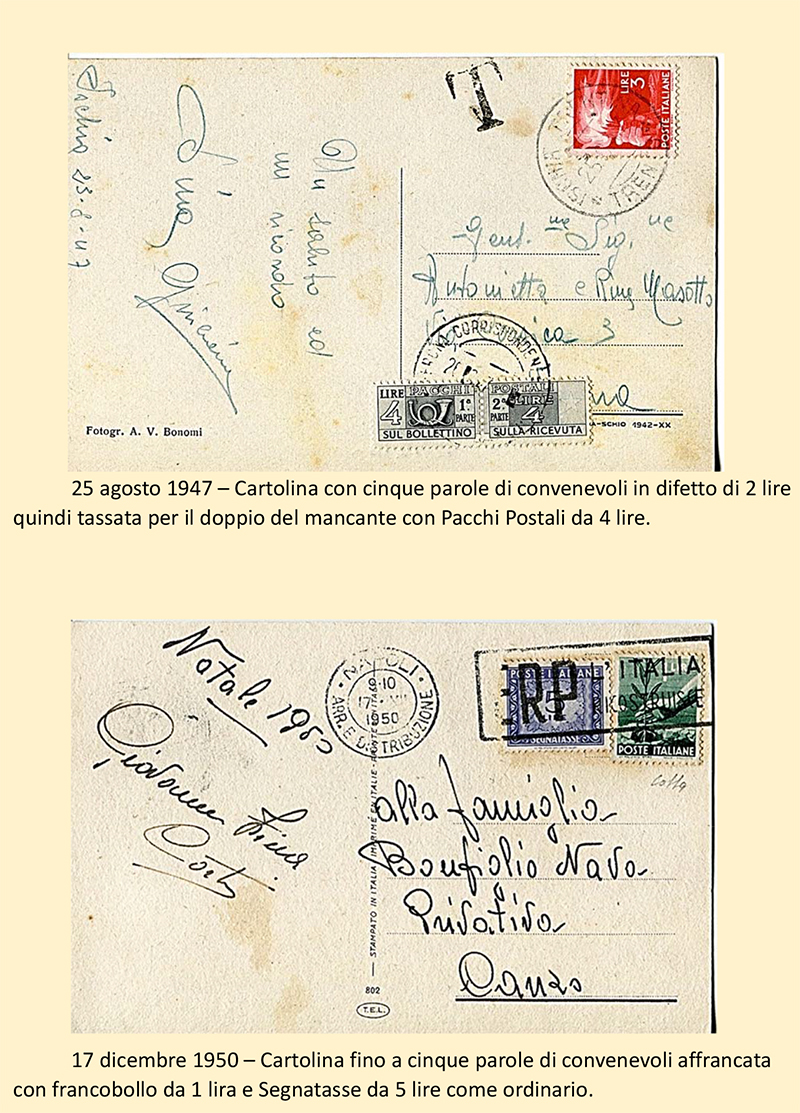 T
LIRE 3
POSTE ITALIANE
ISCHIA
TREN
Ischia 25-8-47
Un saluto ed
un ricordo
Lina
Gent.me Sig.ne
Antonietta e Rina Masotto
3
CORRISPONDENZE
LIRE PACCHI
4 1ª PARTE
SUL BOLLETTINO
POSTALI
2ª PARTE LIRE 4
SULLA RICEVUTA
Fotogr. A. V. Bonomi
A-SCHIO 1942-XX
25 agosto 1947 – Cartolina con cinque parole di convenevoli in difetto di 2 lire
quindi tassata per il doppio del mancante con Pacchi Postali da 4 lire.
Natale 1950
NAPOLI
1950
ARR. E DISTRIBUZIONE
POSTE ITALIANE
SEGNATASSE
L'ITALIA
POSTE ITALIANE
alla famiglia
Bonfiglio Nava
Privativa
Canzo
STAMPATO IN ITALIA
802
T.E.L.
17 dicembre 1950 – Cartolina fino a cinque parole di convenevoli affrancata
con francobollo da 1 lira e Segnatasse da 5 lire come ordinario.